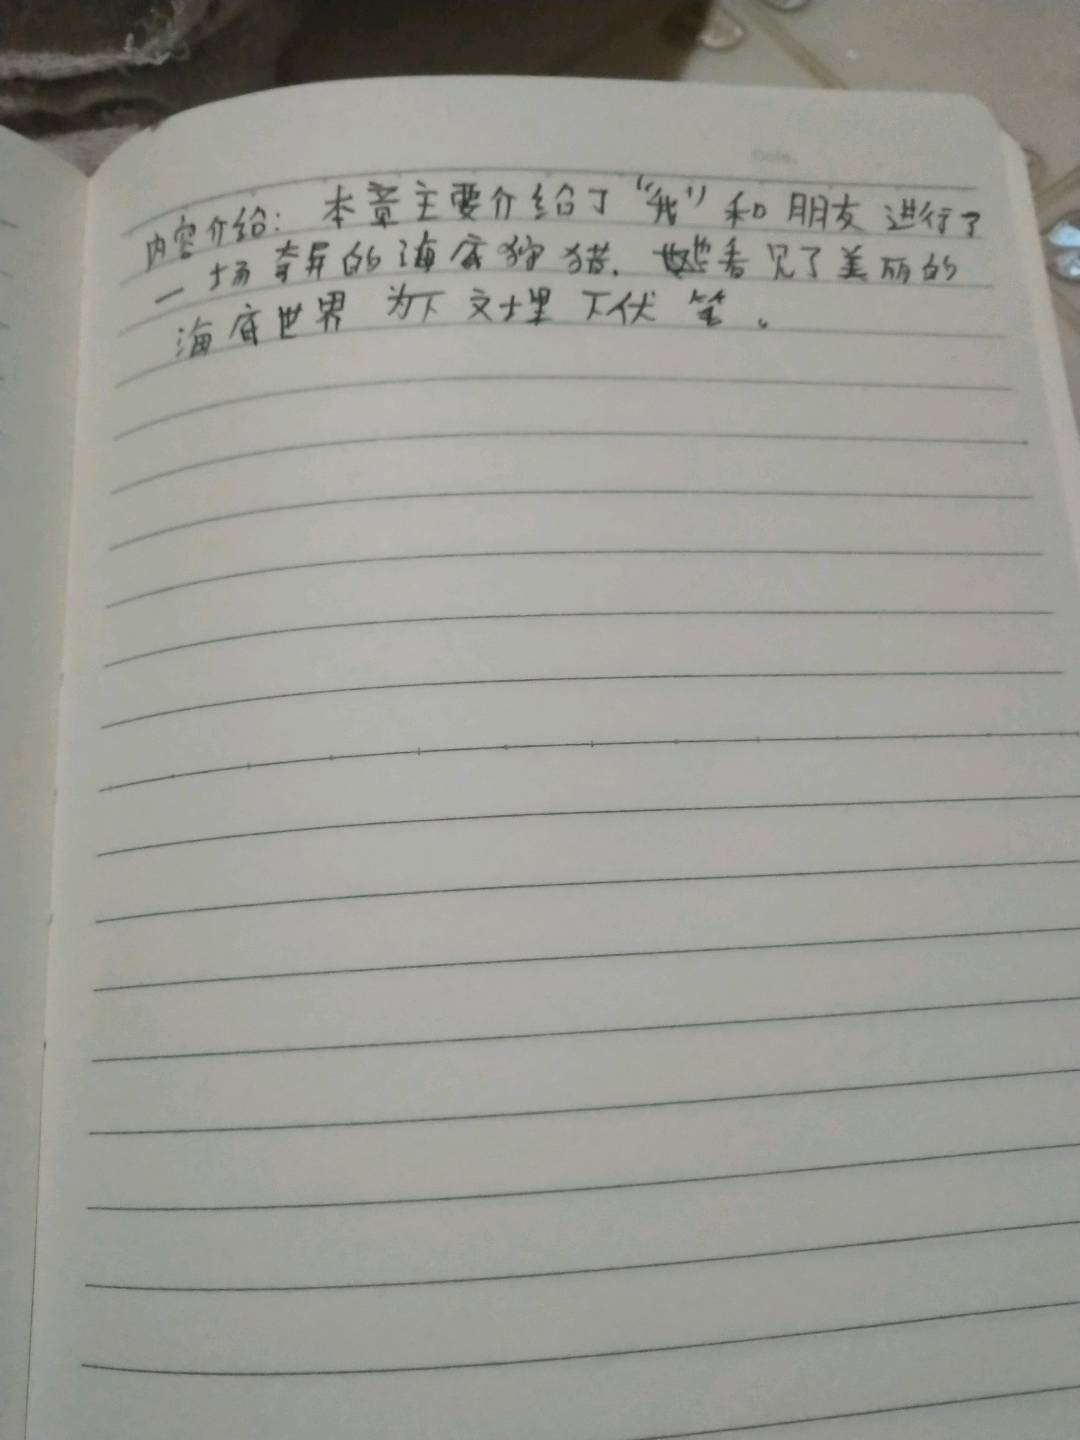 Date.
内容介给: 本章主要介给了“我”和朋友进行了
一场奇异的海底狩猎. 看见了美丽的
海底世界 为下文埋下伏笔。